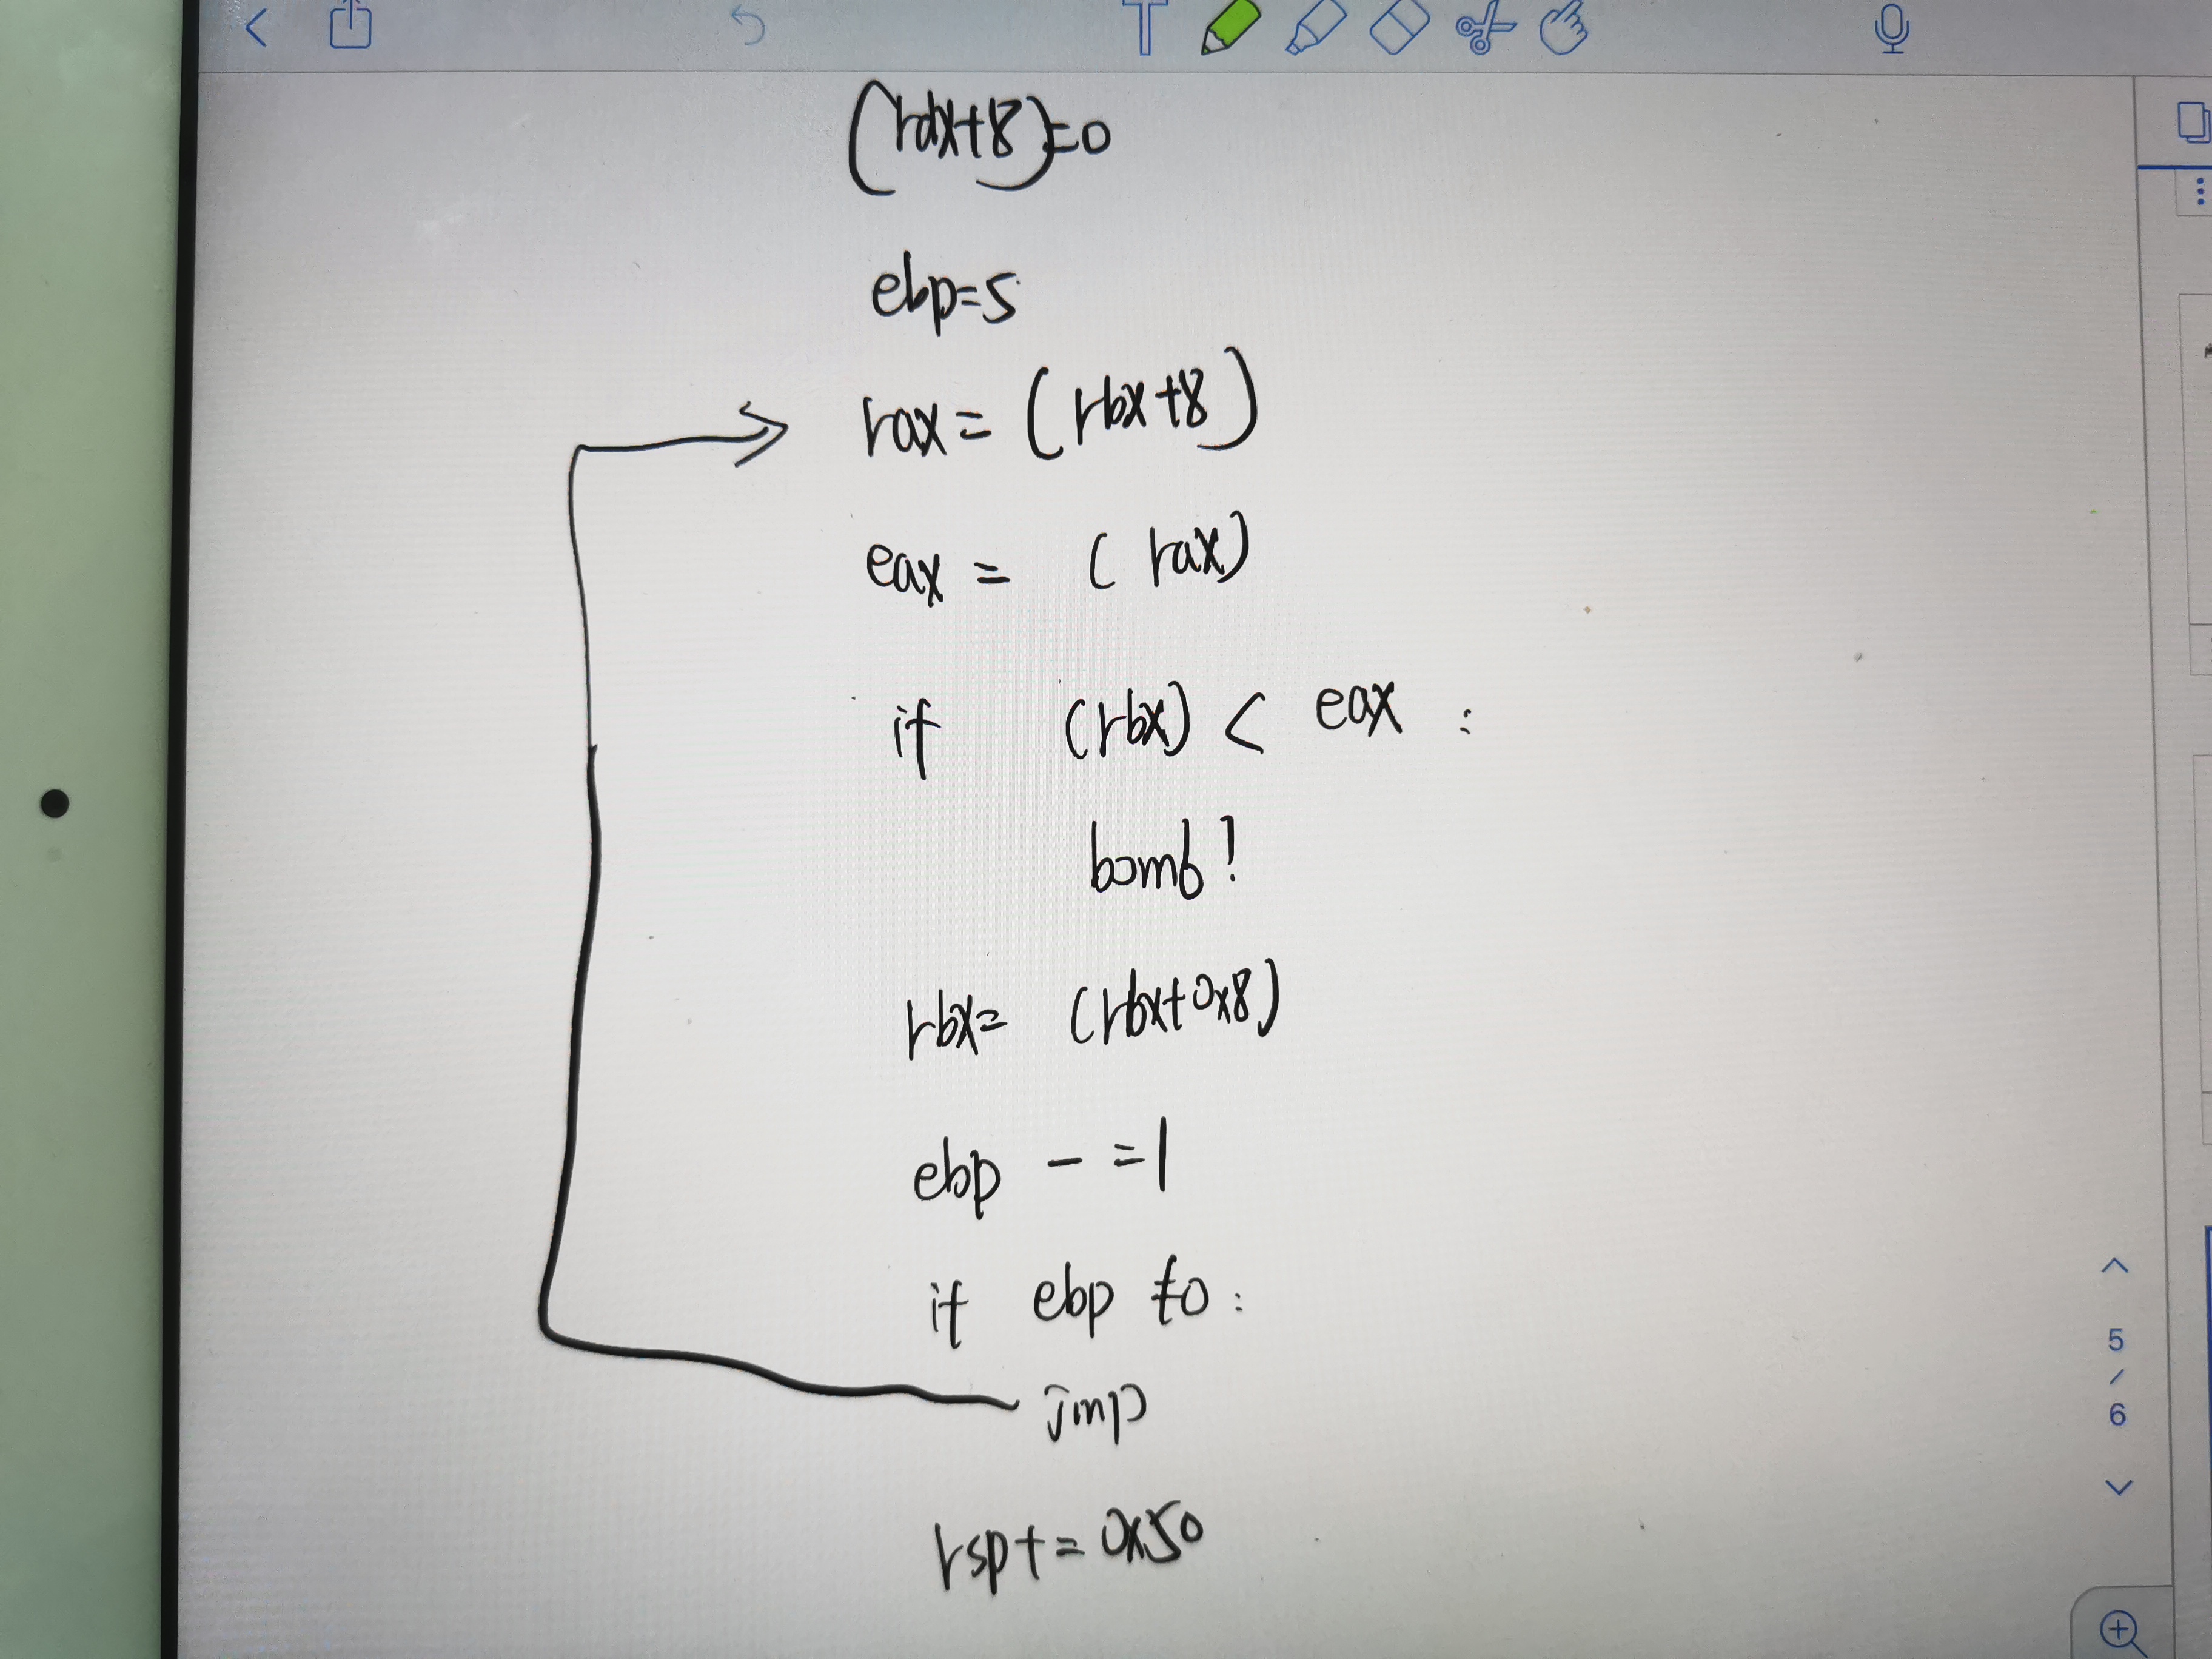 T
(rdx+8)=0
ebp=5
rax= (rbx+8)
eax = ( rax)
if (rbx) < eax :
bomb!
rbx= (rbx+0x8)
ebp - =1
if ebp ≠0:
jmp
rsp+= 0x50
5
/
6